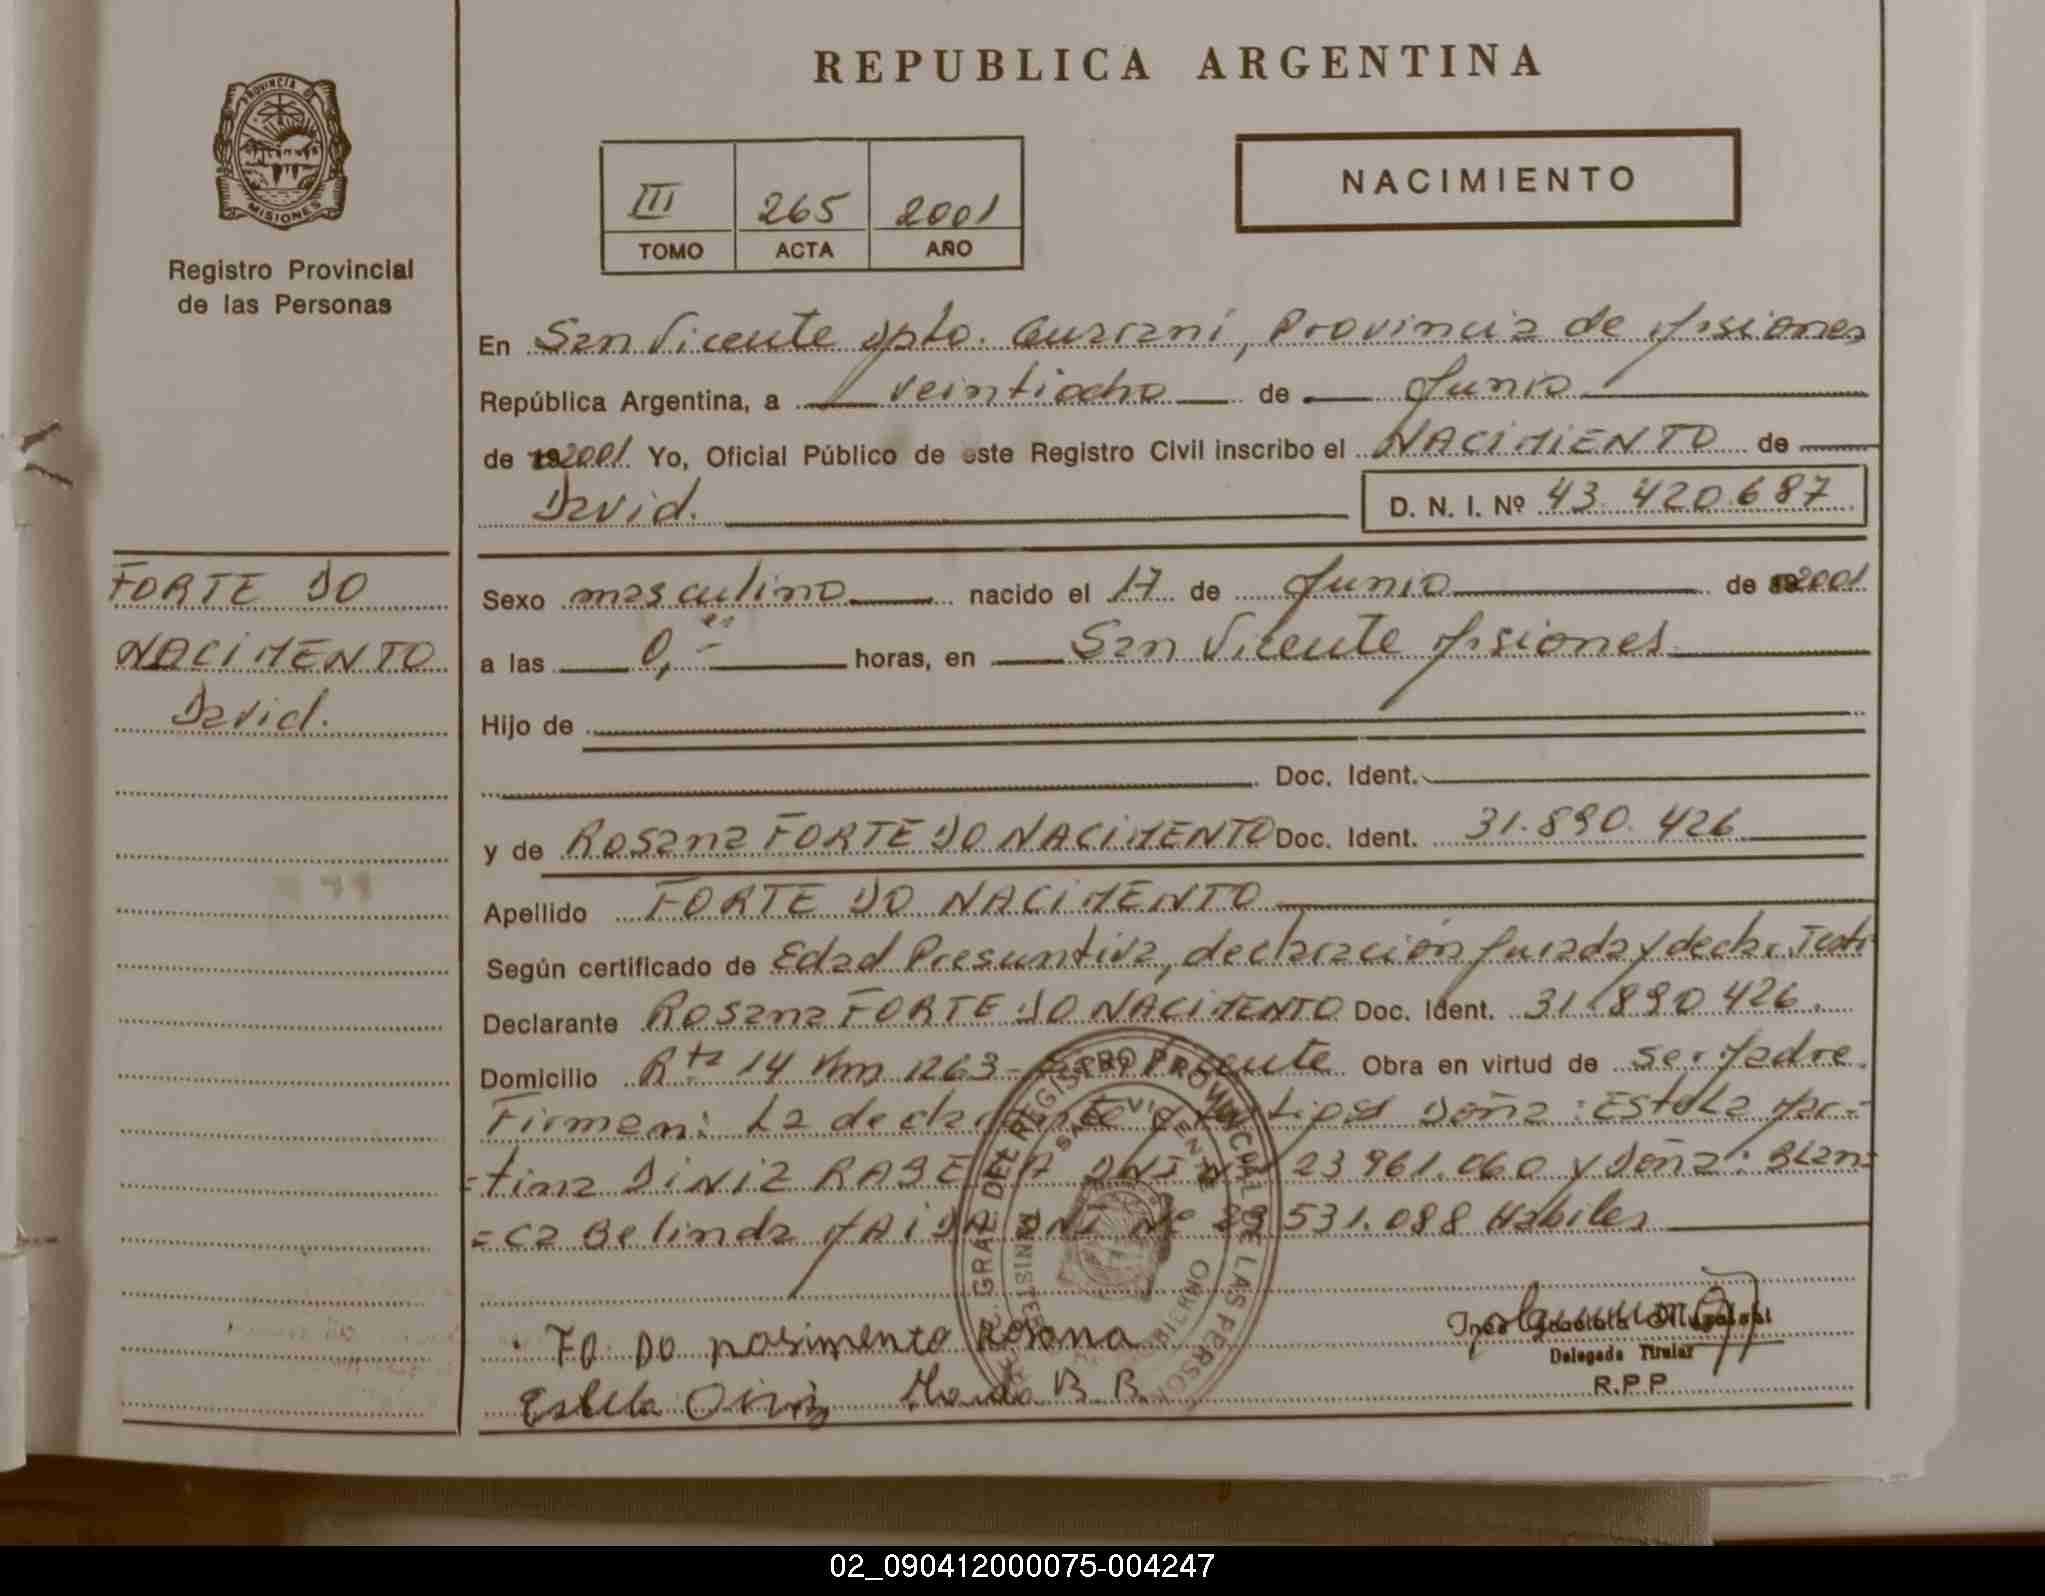 REPUBLICA ARGENTINA
PROVINCIA DE
MISIONES
Registro Provincial
de las Personas
III 265 2001
TOMO ACTA AÑO
NACIMIENTO
En San Vicente Dpto. Guarani, Provincia de Misiones
República Argentina, a veintiocho de Junio
de 2001 Yo, Oficial Público de este Registro Civil inscribo el NACIMIENTO de
David. D. N. I. Nº 43.420.687
FORTE DO
NACIMENTO
David.
Sexo masculino nacido el 17 de Junio de 2001
a las 0, horas, en San Vicente Misiones
Hijo de
Doc. Ident.
y de Rosana FORTE DO NACIMENTO Doc. Ident. 31.890.426
Apellido FORTE DO NACIMENTO
Según certificado de Edad Presuntiva, declaración Jurada y declar. Testi
Declarante Rosana FORTE DO NACIMENTO Doc. Ident. 31.890.426.
Domicilio Rta 14 Km 1263 - Obra en virtud de ser Madre.
Firman: La declarante y testigos Doña: Estela Mar-
=tina DINIZ DNI Nº 23.961.060 y Doña: Blan=
=ca Belinda MAIDA DNI Nº 531.088 Habiles
Fo Do nasimento Rosana
Delegada Titular
R.P.P.
Estela Diniz B. B.
DEL REGISTRO PROVINCIAL DE LAS PERSO
SAN VICENTE
02_090412000075-004247